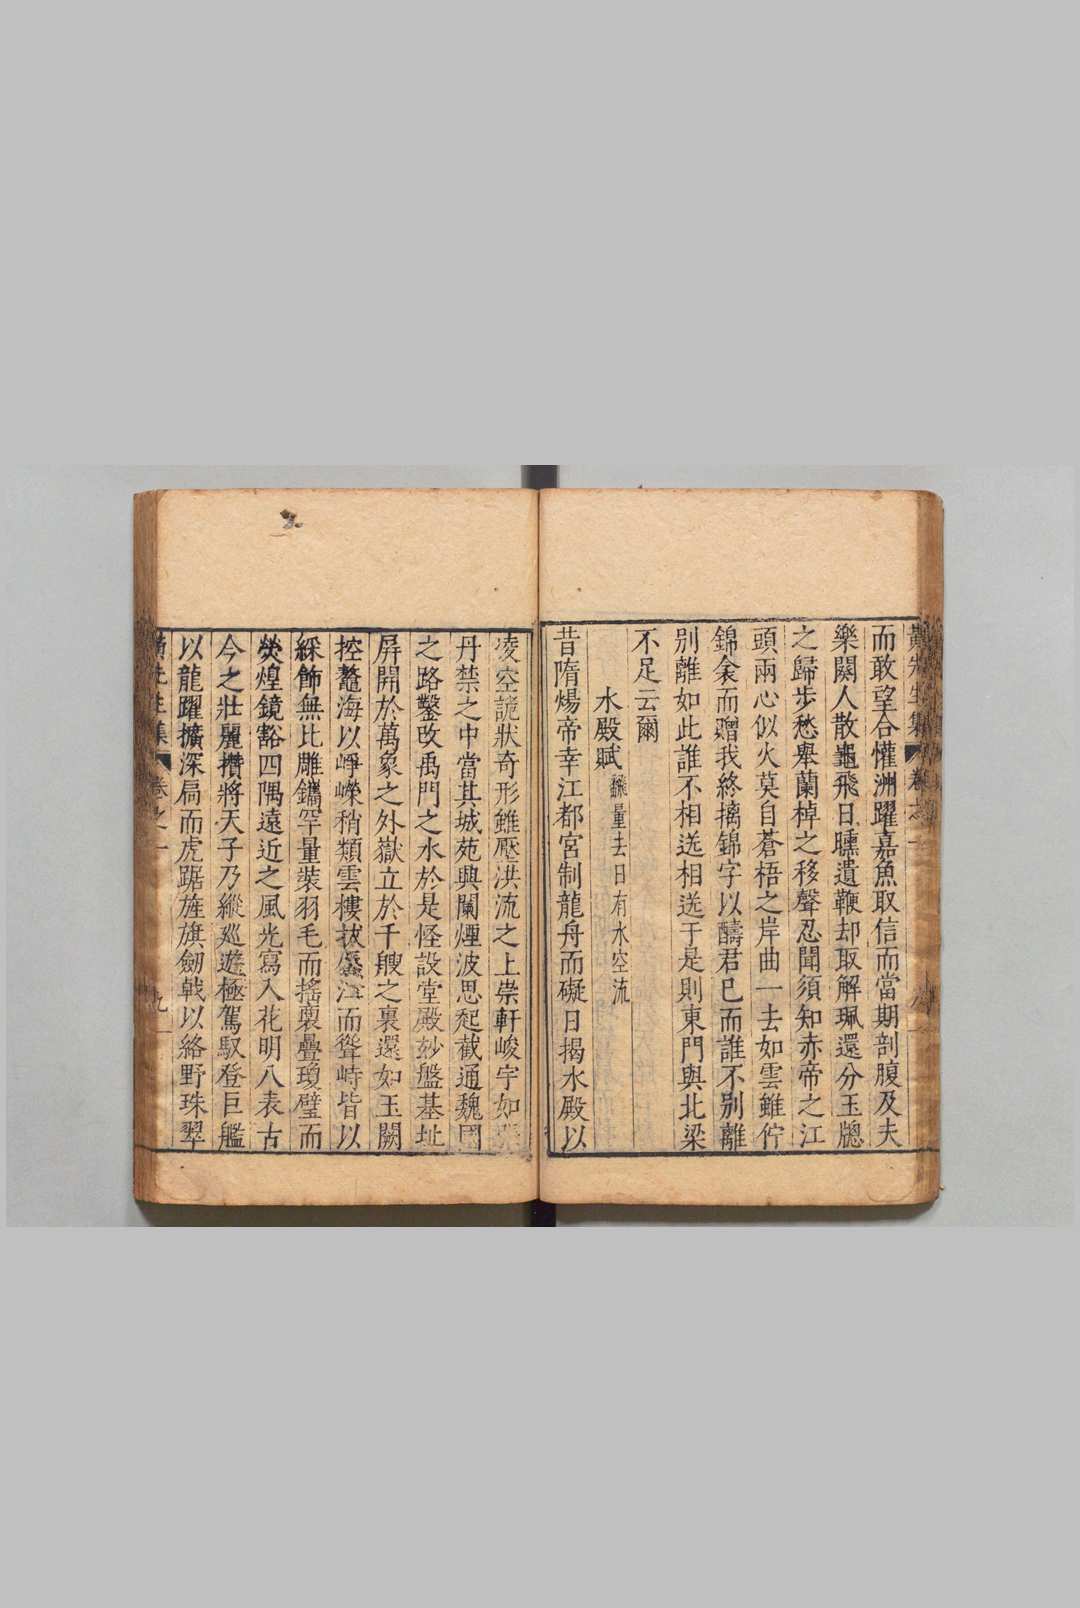 黃先生集 卷之一
而敢望合懽洲躍嘉魚取信而當期剖腹及夫
樂闋人散颿飛日曛遺鞭却取解珮還分玉牕
之歸步愁舉蘭棹之移聲忍聞須知赤帝之江
頭兩心似火莫自蒼梧之岸曲一去如雲雖佇
錦衾而贈我終摛錦字以酬君已而誰不別離
別離如此誰不相送相送于是則東門與北梁
不足云爾
水殿賦 量去日有水空流
昔隋煬帝幸江都宮制龍舟而礙日揭水殿以
凌空詭狀奇形雖壓洪流之上崇軒峻宇如
丹禁之中當其城苑興闌煙波思起截通魏國
之路鑿改禹門之水於是怪設堂殿妙盤基址
屏開於萬象之外嶽立於千艘之裏還如玉闕
控鼇海以崢嶸稍類雲樓拔蜃江而聳峙皆以
綵飾無比雕鐫罕量裝羽毛而搖裔疊瓊璧而
熒煌鏡豁四隅遠近之風光寫入花明八表古
今之壯麗攢將天子乃縱巡遊極駕馭登巨艦
以龍躍擴深扃而虎踞旌旗劒戟以絡野珠翠
黃先生集 卷之一 九